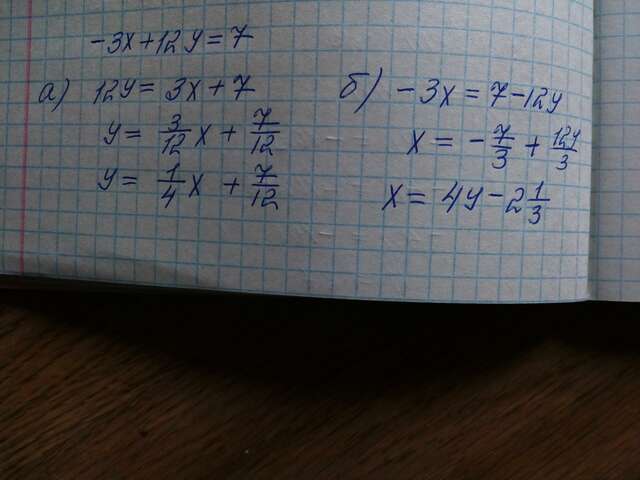 -3x+12y=7
а) 12y= 3x+7
y= 3/12 x + 7/12
y= 1/4 x + 7/12
б) -3x = 7-12y
x = - 7/3 + 12y/3
x= 4y-2 1/3